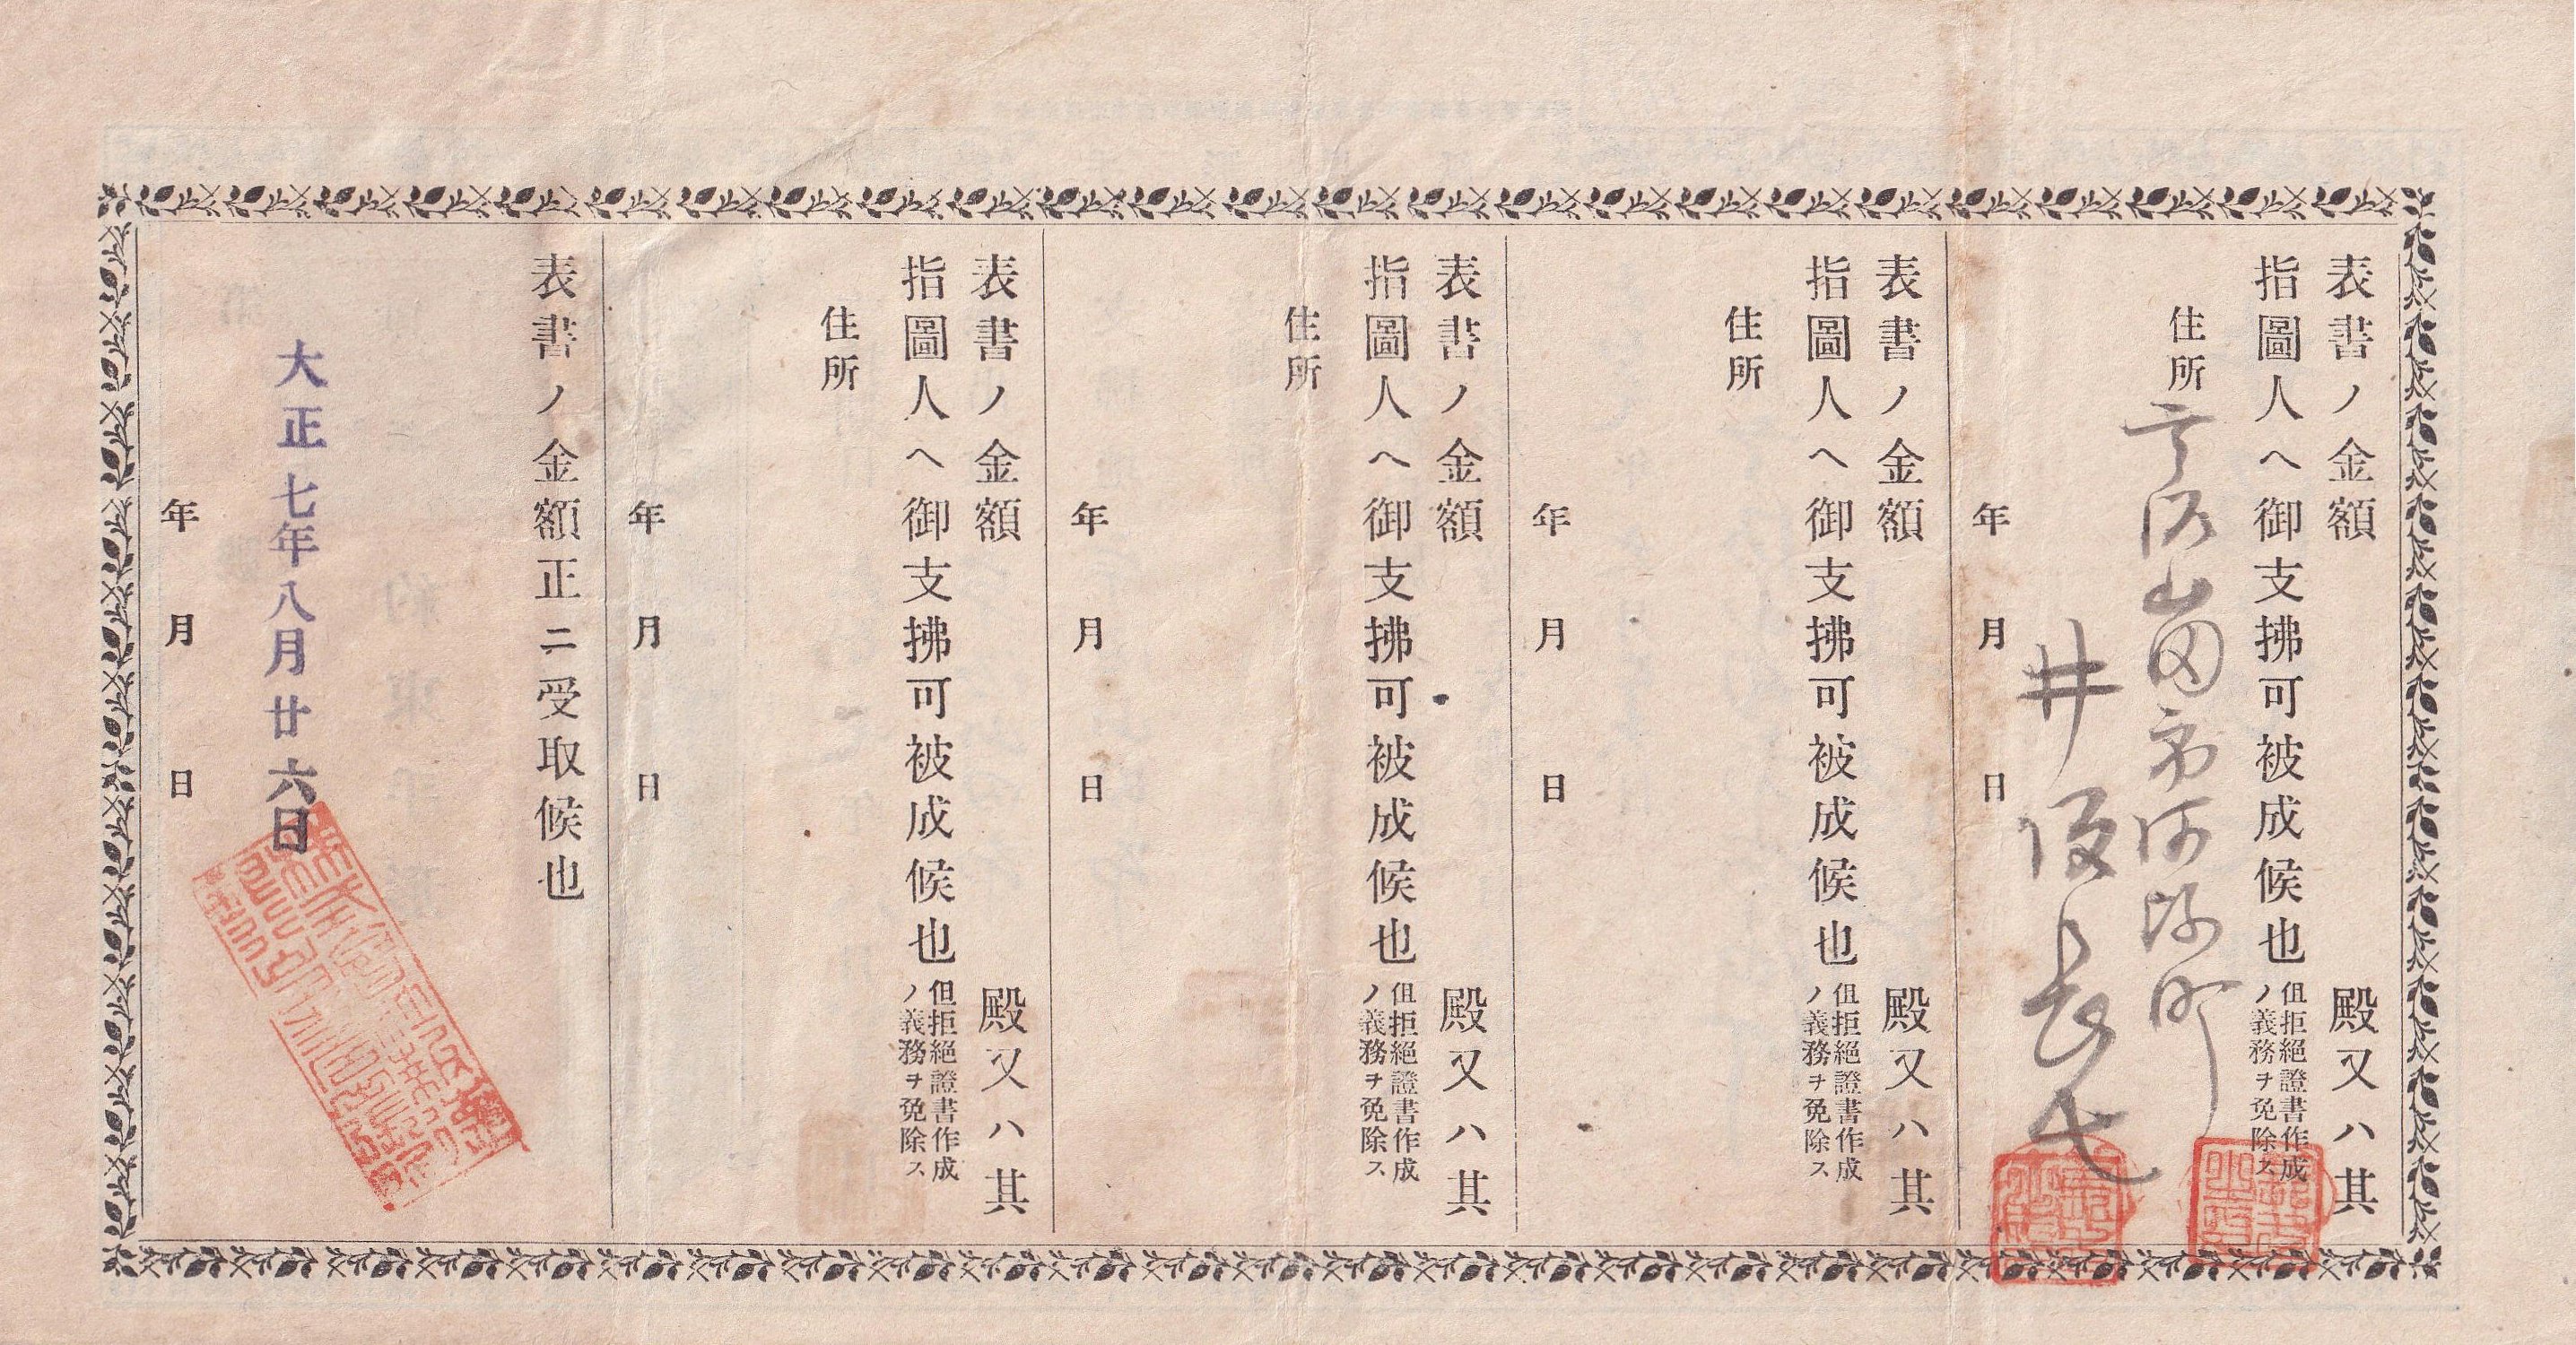 表書ノ金額 殿又ハ其
指圖人ヘ御支拂可被成候也
但拒絕證書作成
ノ義務ヲ免除ス
住所 宇治山田市河崎町
井 長七
年 月 日
表書ノ金額 殿又ハ其
指圖人ヘ御支拂可被成候也
但拒絕證書作成
ノ義務ヲ免除ス
住所
年 月 日
表書ノ金額 殿又ハ其
指圖人ヘ御支拂可被成候也
但拒絕證書作成
ノ義務ヲ免除ス
住所
年 月 日
表書ノ金額 殿又ハ其
指圖人ヘ御支拂可被成候也
但拒絕證書作成
ノ義務ヲ免除ス
住所
年 月 日
表書ノ金額正ニ受取候也
大正七年八月廿六日
年 月 日